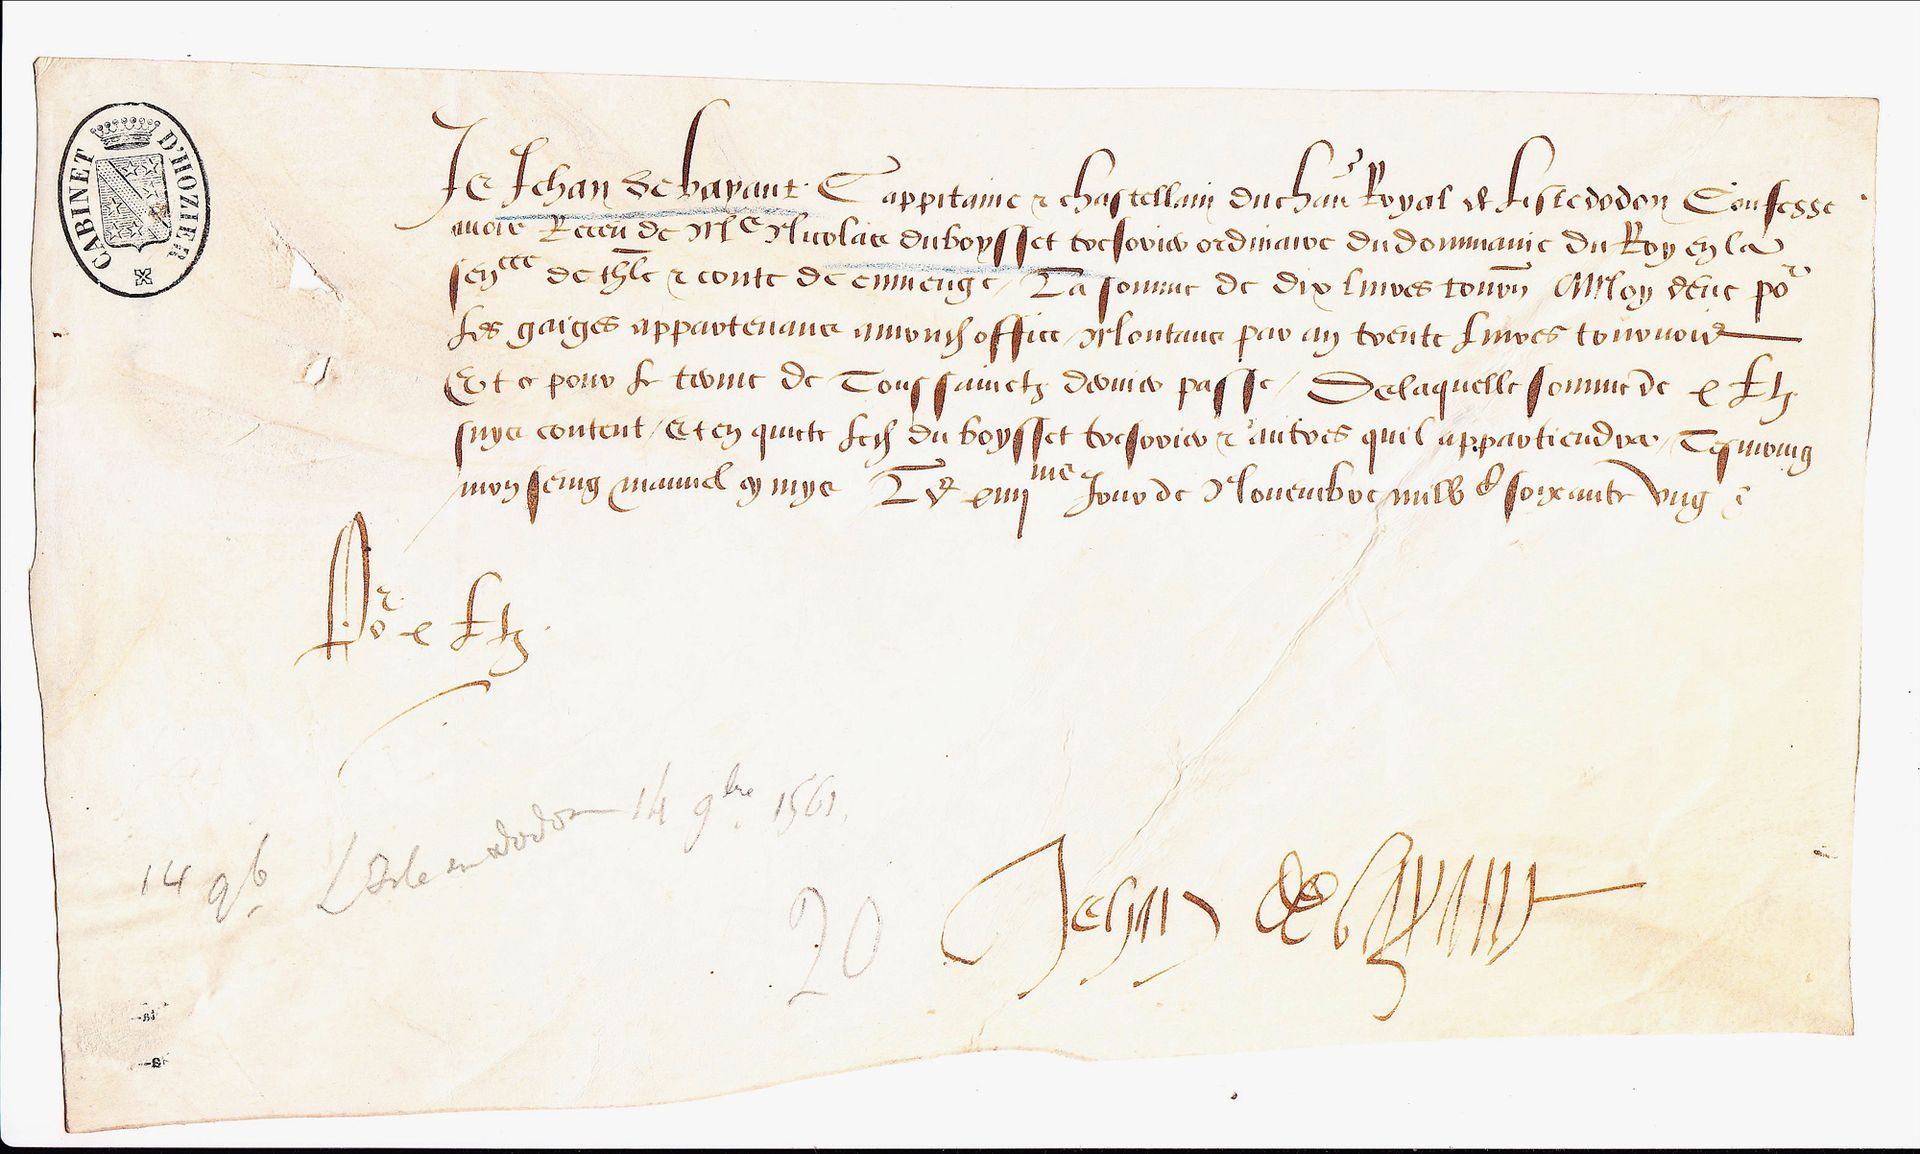 CABINET D'HOZIER
Je Jehan de bavant Cappitaine & chastellain du chau Royal de Lisledodon Confesse
avoir Receu de Me Nicolas du boysset tresorier ordinaire du dommaine du Roy en la
senee de thle & conte de cmenge / La somme de dix livres tourn A Moy deue por
les gaiges appartenans a mond office / Montans par an trente livres tournois
Et ce pour le terme de Toussainctz dernier passe / De laquelle somme de x Ltz
suys content / Et en quicte led du boysset tresorier & autres quil appartiendra / Tesmoing
mon seing manuel cy mys Le xiiiime Jour de Novembre mil vc soixante Ung
Por x Ltz
14 9b. L'Isle en dodon 14 9bre 1561.
20
Jehan de bavant